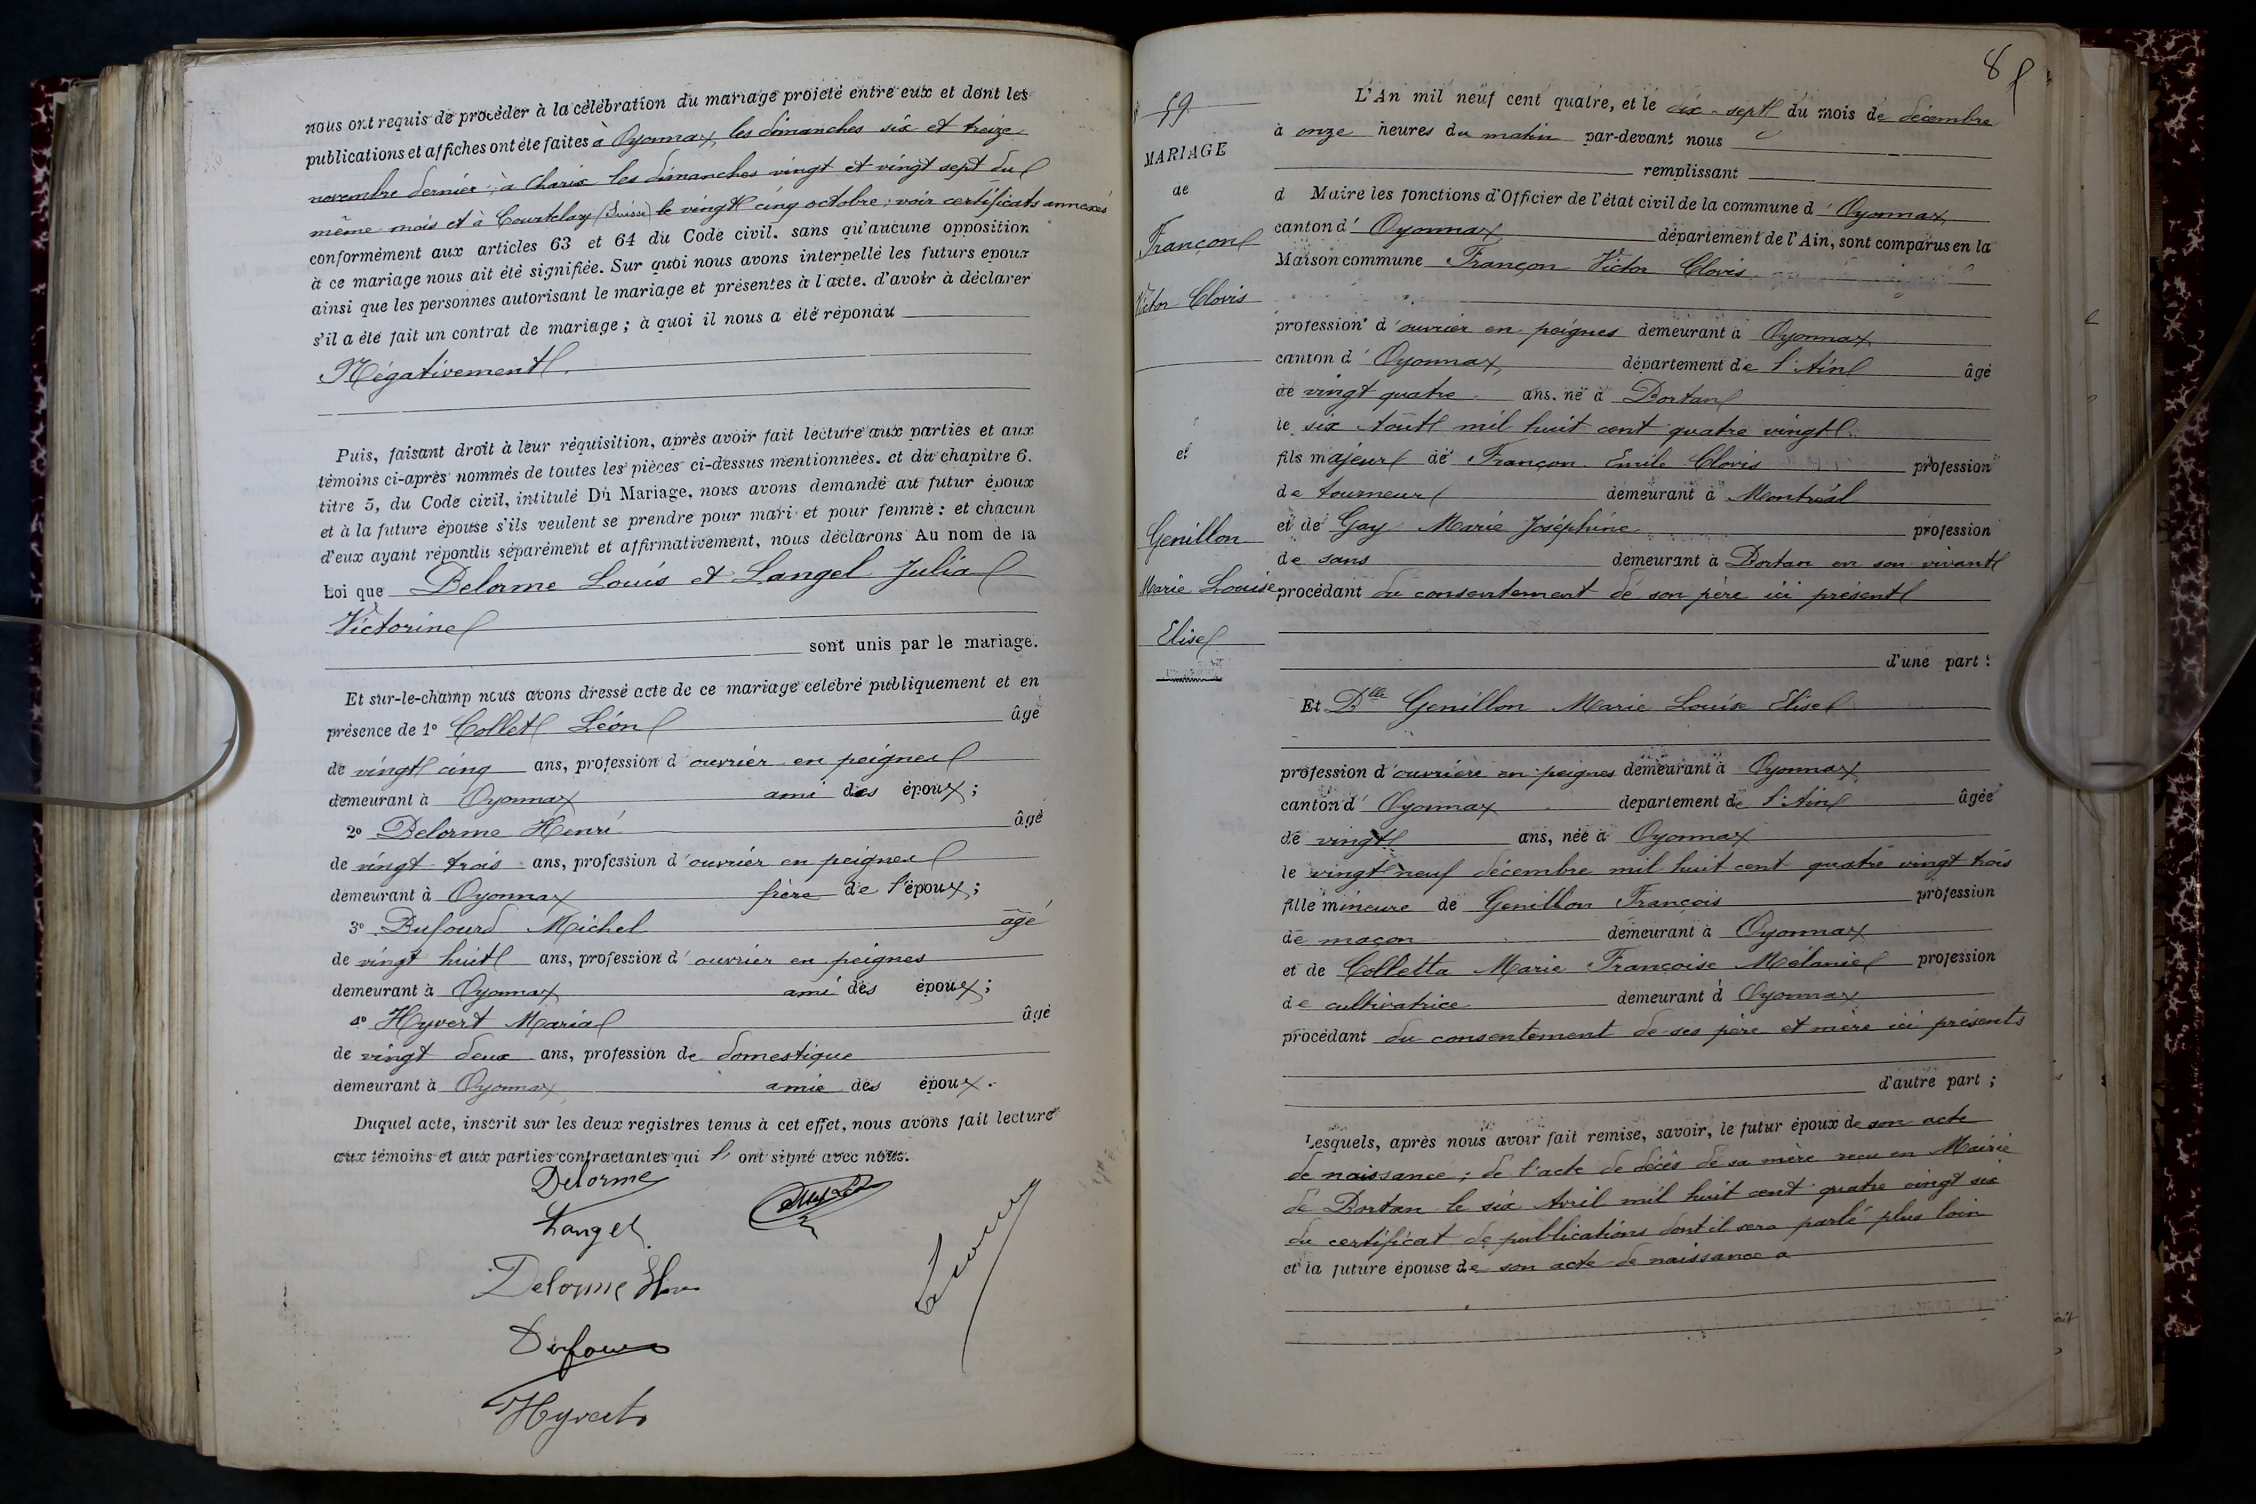 nous ont requis de procéder à la célébration du mariage projeté entre eux et dont les
publications et affiches ont été faites à Oyonnax, les dimanches six et treize
novembre dernier ; à Charix les dimanches vingt et vingt sept du
même mois et à Courtelary (Suisse) le vingt cinq octobre ; voir certificats annexés
conformément aux articles 63 et 64 du Code civil, sans qu'aucune opposition
à ce mariage nous ait été signifiée. Sur quoi nous avons interpellé les futurs époux
ainsi que les personnes autorisant le mariage et présentes à l'acte, d'avoir à déclarer
s'il a été fait un contrat de mariage ; à quoi il nous a été répondu
Négativement.
Puis, faisant droit à leur réquisition, après avoir fait lecture aux parties et aux
témoins ci-après nommés de toutes les pièces ci-dessus mentionnées, et du chapitre 6.
titre 5, du Code civil, intitulé Du Mariage, nous avons demandé au futur époux
et à la future épouse s'ils veulent se prendre pour mari et pour femme : et chacun
d'eux ayant répondu séparément et affirmativement, nous déclarons Au nom de la
Loi que Delorme Louis et Langel Julia
Victorine
sont unis par le mariage.
Et sur-le-champ nous avons dressé acte de ce mariage célébré publiquement et en
présence de 1º Collet Léon âgé
de vingt cinq ans, profession d'ouvrier en peignes
demeurant à Oyonnax ami des époux ;
2º Delorme Henri âgé
de vingt trois ans, profession d'ouvrier en peignes
demeurant à Oyonnax frère de l'époux ;
3º Dufourd Michel âgé
de vingt huit ans, profession d'ouvrier en peignes
demeurant à Oyonnax ami des époux ;
4º Hyvert Maria âgé
de vingt deux ans, profession de domestique
demeurant à Oyonnax amie des époux.
Duquel acte, inscrit sur les deux registres tenus à cet effet, nous avons fait lecture
aux témoins et aux parties contractantes qui l' ont signé avec nous.
Delorme
Langel
Delorme Hen
Dufour
Hyvert
8
59
MARIAGE
de
Françon
Victor Clovis
et
Genillon
Marie Louise
Elise
L'An mil neuf cent quatre, et le dix-sept du mois de décembre
à onze heures du matin par-devant nous
remplissant
d Maire les fonctions d'Officier de l'état civil de la commune d'Oyonnax,
canton d'Oyonnax département de l'Ain, sont comparus en la
Maison commune Françon Victor Clovis
profession d'ouvrier en peignes demeurant à Oyonnax
canton d'Oyonnax, département de l'Ain âgé
de vingt quatre ans, né à Dortan
le six Août mil huit cent quatre vingt
fils majeur de Françon Emile Clovis profession
de tourneur demeurant à Montréal
et de Gay Marie Joséphine profession
de sans demeurant à Dortan en son vivant
procédant du consentement de son père ici présent
d'une part :
Et Dlle Genillon Marie Louise Elise
profession d'ouvrière en peignes demeurant à Oyonnax
canton d'Oyonnax département de l'Ain âgée
de vingt ans, née à Oyonnax
le vingt neuf décembre mil huit cent quatre vingt trois
fille mineure de Genillon François profession
de maçon demeurant à Oyonnax
et de Colletta Marie Françoise Mélanie profession
de cultivatrice demeurant à Oyonnax
procédant du consentement de ses père et mère ici présents
d'autre part ;
Lesquels, après nous avoir fait remise, savoir, le futur époux de son acte
de naissance ; de l'acte de décès de sa mère reçu en Mairie
de Dortan le six Avril mil huit cent quatre vingt six
du certificat de publications dont il sera parlé plus loin
et la future épouse de son acte de naissance